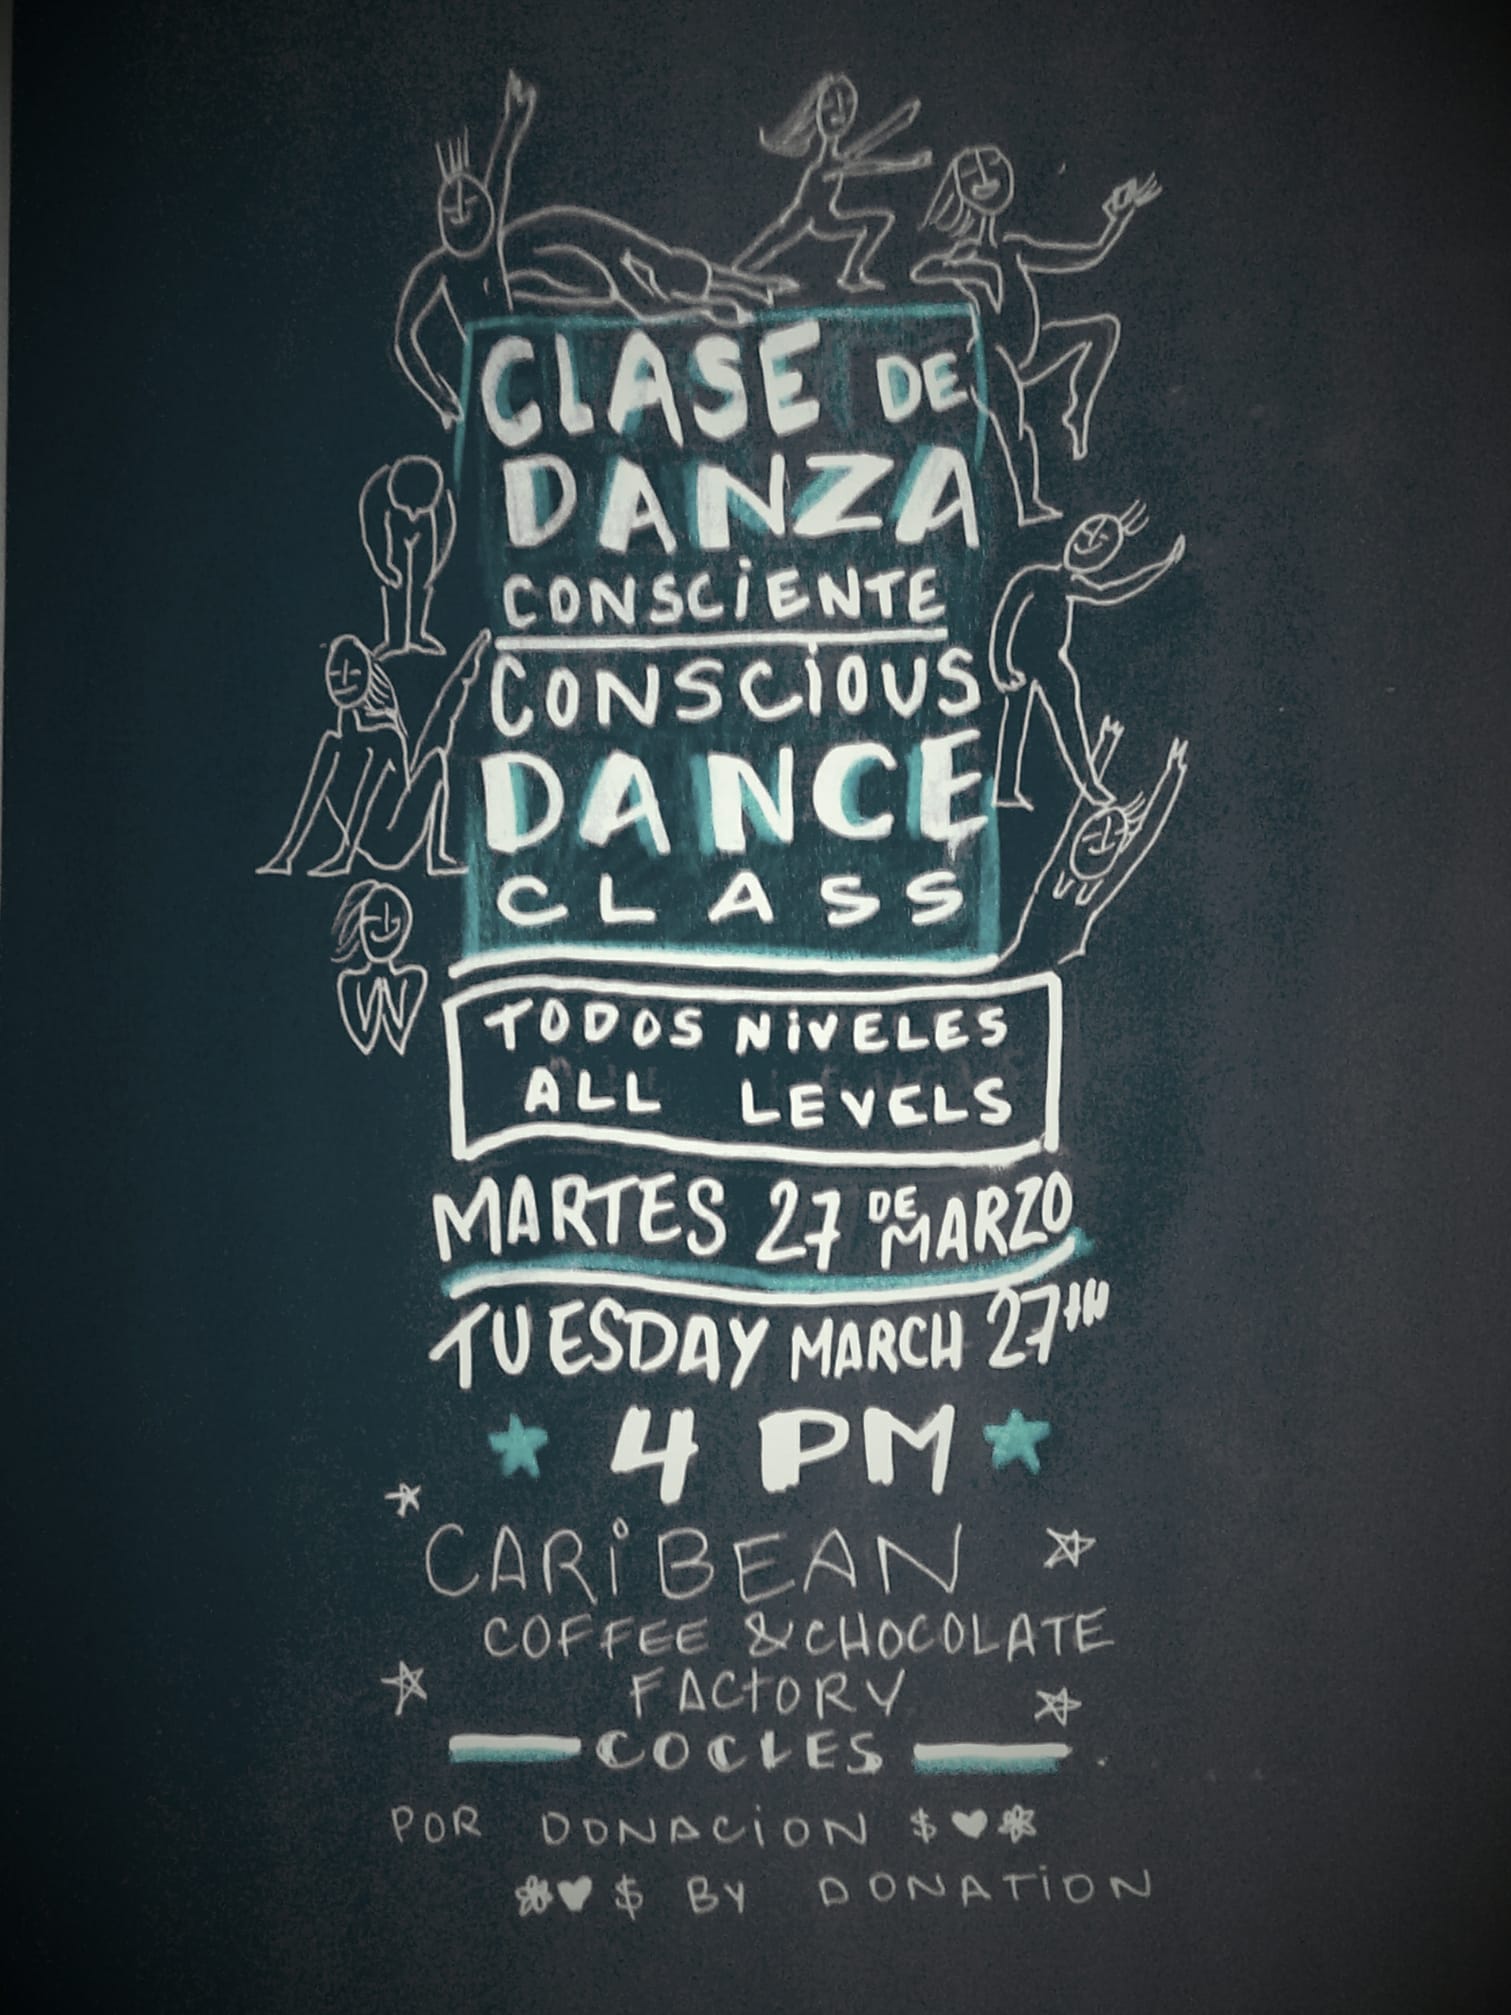 CLASE DE
DANZA
CONSCIENTE
CONSCIOUS
DANCE
CLASS
TODOS NIVELES
ALL LEVELS
MARTES 27 DE MARZO
TUESDAY MARCH 27TH
4 PM
CARIBEAN
COFFEE & CHOCOLATE
FACTORY
COCLES
POR DONACION $
$ BY DONATION